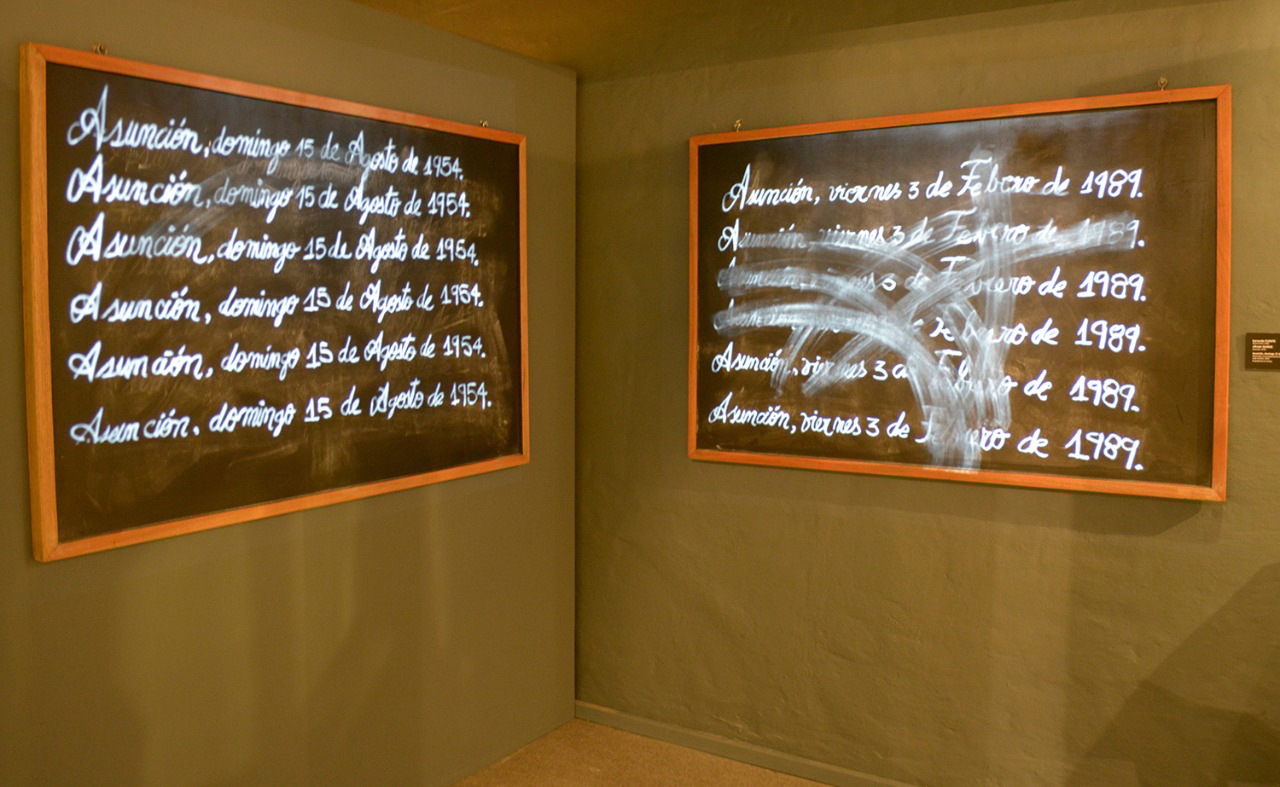 Asunción, domingo 15 de Agosto de 1954.
Asunción, domingo 15 de Agosto de 1954.
Asunción, domingo 15 de Agosto de 1954.
Asunción, domingo 15 de Agosto de 1954.
Asunción, domingo 15 de Agosto de 1954.
Asunción, domingo 15 de Agosto de 1954.
Asunción, viernes 3 de Febrero de 1989.
Asunción, viernes 3 de Febrero de 1989.
Asunción, viernes 3 de Febrero de 1989.
Asunción, de Febrero de 1989.
Asunción, viernes 3 de Febrero de 1989.
Asunción, viernes 3 de Febrero de 1989.